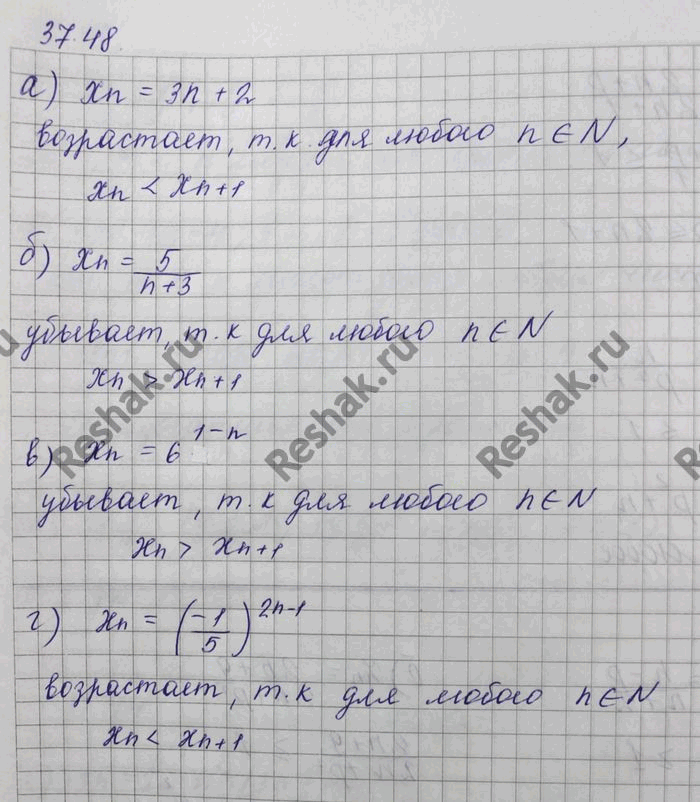 37.48.
а) xn = 3n + 2
возрастает, т.к. для любого n ∈ N,
xn < xn+1
б) xn = 5/(n+3)
убывает, т.к для любого n ∈ N
xn > xn+1
в) xn = 6^(1-n)
убывает, т.к для любого n ∈ N
xn > xn+1
г) xn = (-1/5)^(2n-1)
возрастает, т.к для любого n ∈ N
xn < xn+1
Reshak.ru
Reshak.ru
Reshak.ru